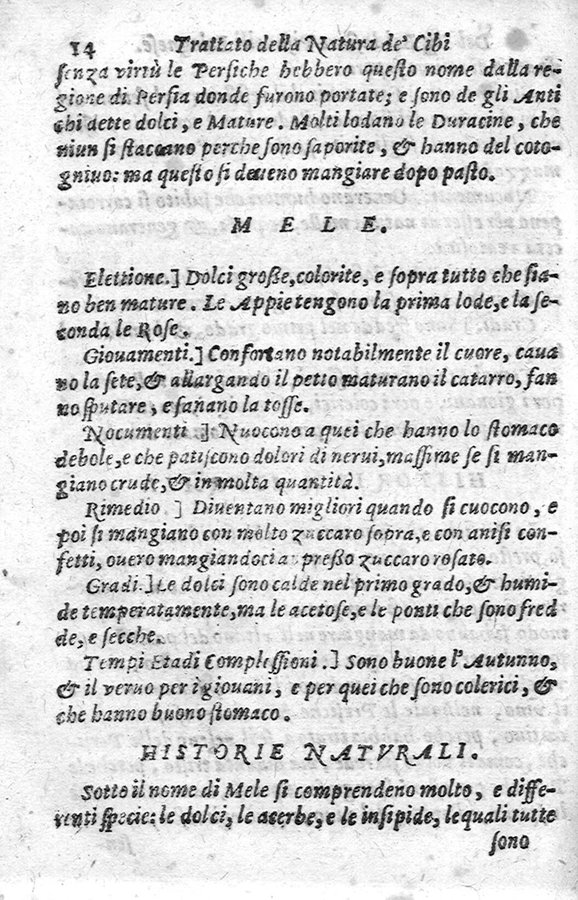 14 Trattato della Natura de' Cibi
senza virtù le Persiche hebbero questo nome dalla re-
gione di Persia donde furono portate; e sono de gli Anti
chi dette dolci, e Mature. Molti lodano le Duracine, che
niun si staccano perche sono saporite, & hanno del coto-
gniuo: ma questo si deueno mangiare dopo pasto.
MELE.
Elettione.] Dolci große, colorite, e sopra tutto che sia-
no ben mature. Le Appie tengono la prima lode, e la se-
conda le Rose.
Giouamenti.] Confortano notabilmente il cuore, caua
no la sete, & allargando il petto maturano il catarro, fan
no sputare, e sanano la tosse.
Nocumenti.] Nuocono a quei che hanno lo stomaco
debole, e che patiscono dolori di nerui, massime se si man-
giano crude, & in molta quantità.
Rimedio.] Diuentano migliori quando si cuocono, e
poi si mangiano con molto zuccaro sopra, e con anisi con-
fetti, ouero mangiandoci apreßo zuccaro rosato.
Gradi.] Le dolci sono calde nel primo grado, & humi-
de temperatamente, ma le acetose, e le ponti che sono fred
de, e secche.
Tempi Etadi Complessioni.] Sono buone l'Autunno,
& il veruo per i giouani, e per quei che sono colerici, &
che hanno buono stomaco.
HISTORIE NATVRALI.
Sotto il nome di Mele si comprendeno molto, e diffe-
renti specie: le dolci, le acerbe, e le insipide, le quali tutte
sono